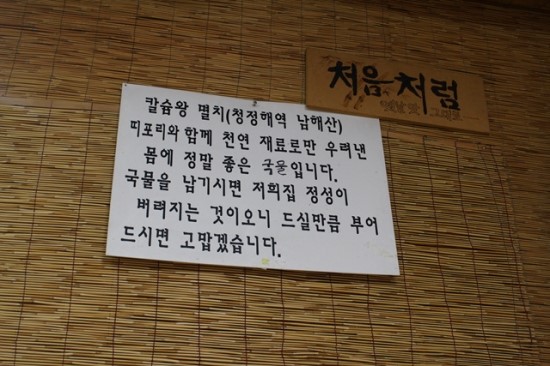 처음처럼
옛날 맛 그대로
칼슘왕 멸치(청정해역 남해산)
띠포리와 함께 천연 재료로만 우려낸
몸에 정말 좋은 국물입니다.
국물을 남기시면 저희집 정성이
버려지는 것이오니 드실만큼 부어
드시면 고맙겠습니다.